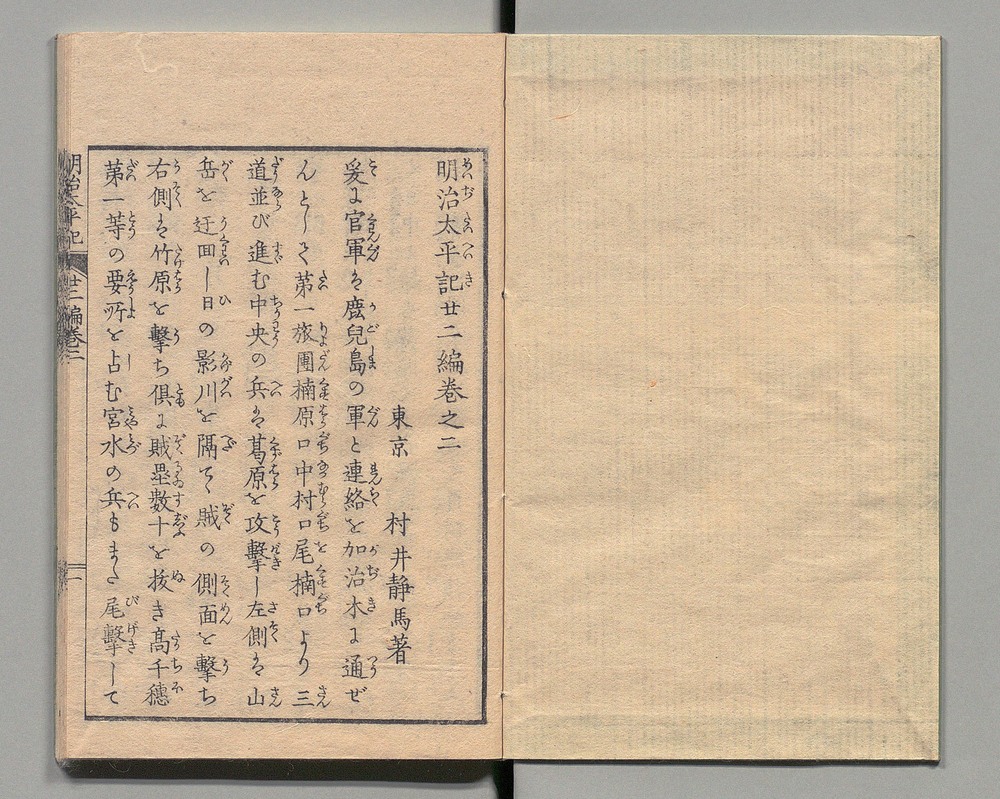 明治太平記廿二編巻之二
東京 村井静馬著
爰に官軍は鹿兒島の軍と連絡を加治木に通ぜ
んとして第一旅團楠原口中村口尾楠口より三
道並び進む中央の兵は葛原を攻擊し左側は山
岳を迂回し日の影川を隔て賊の側面を擊ち
右側は竹原を擊ち俱に賊塁数十を抜き髙千穗
第一等の要所を占む宮水の兵もまた尾擊して
明治太平記 廿二編巻二 一